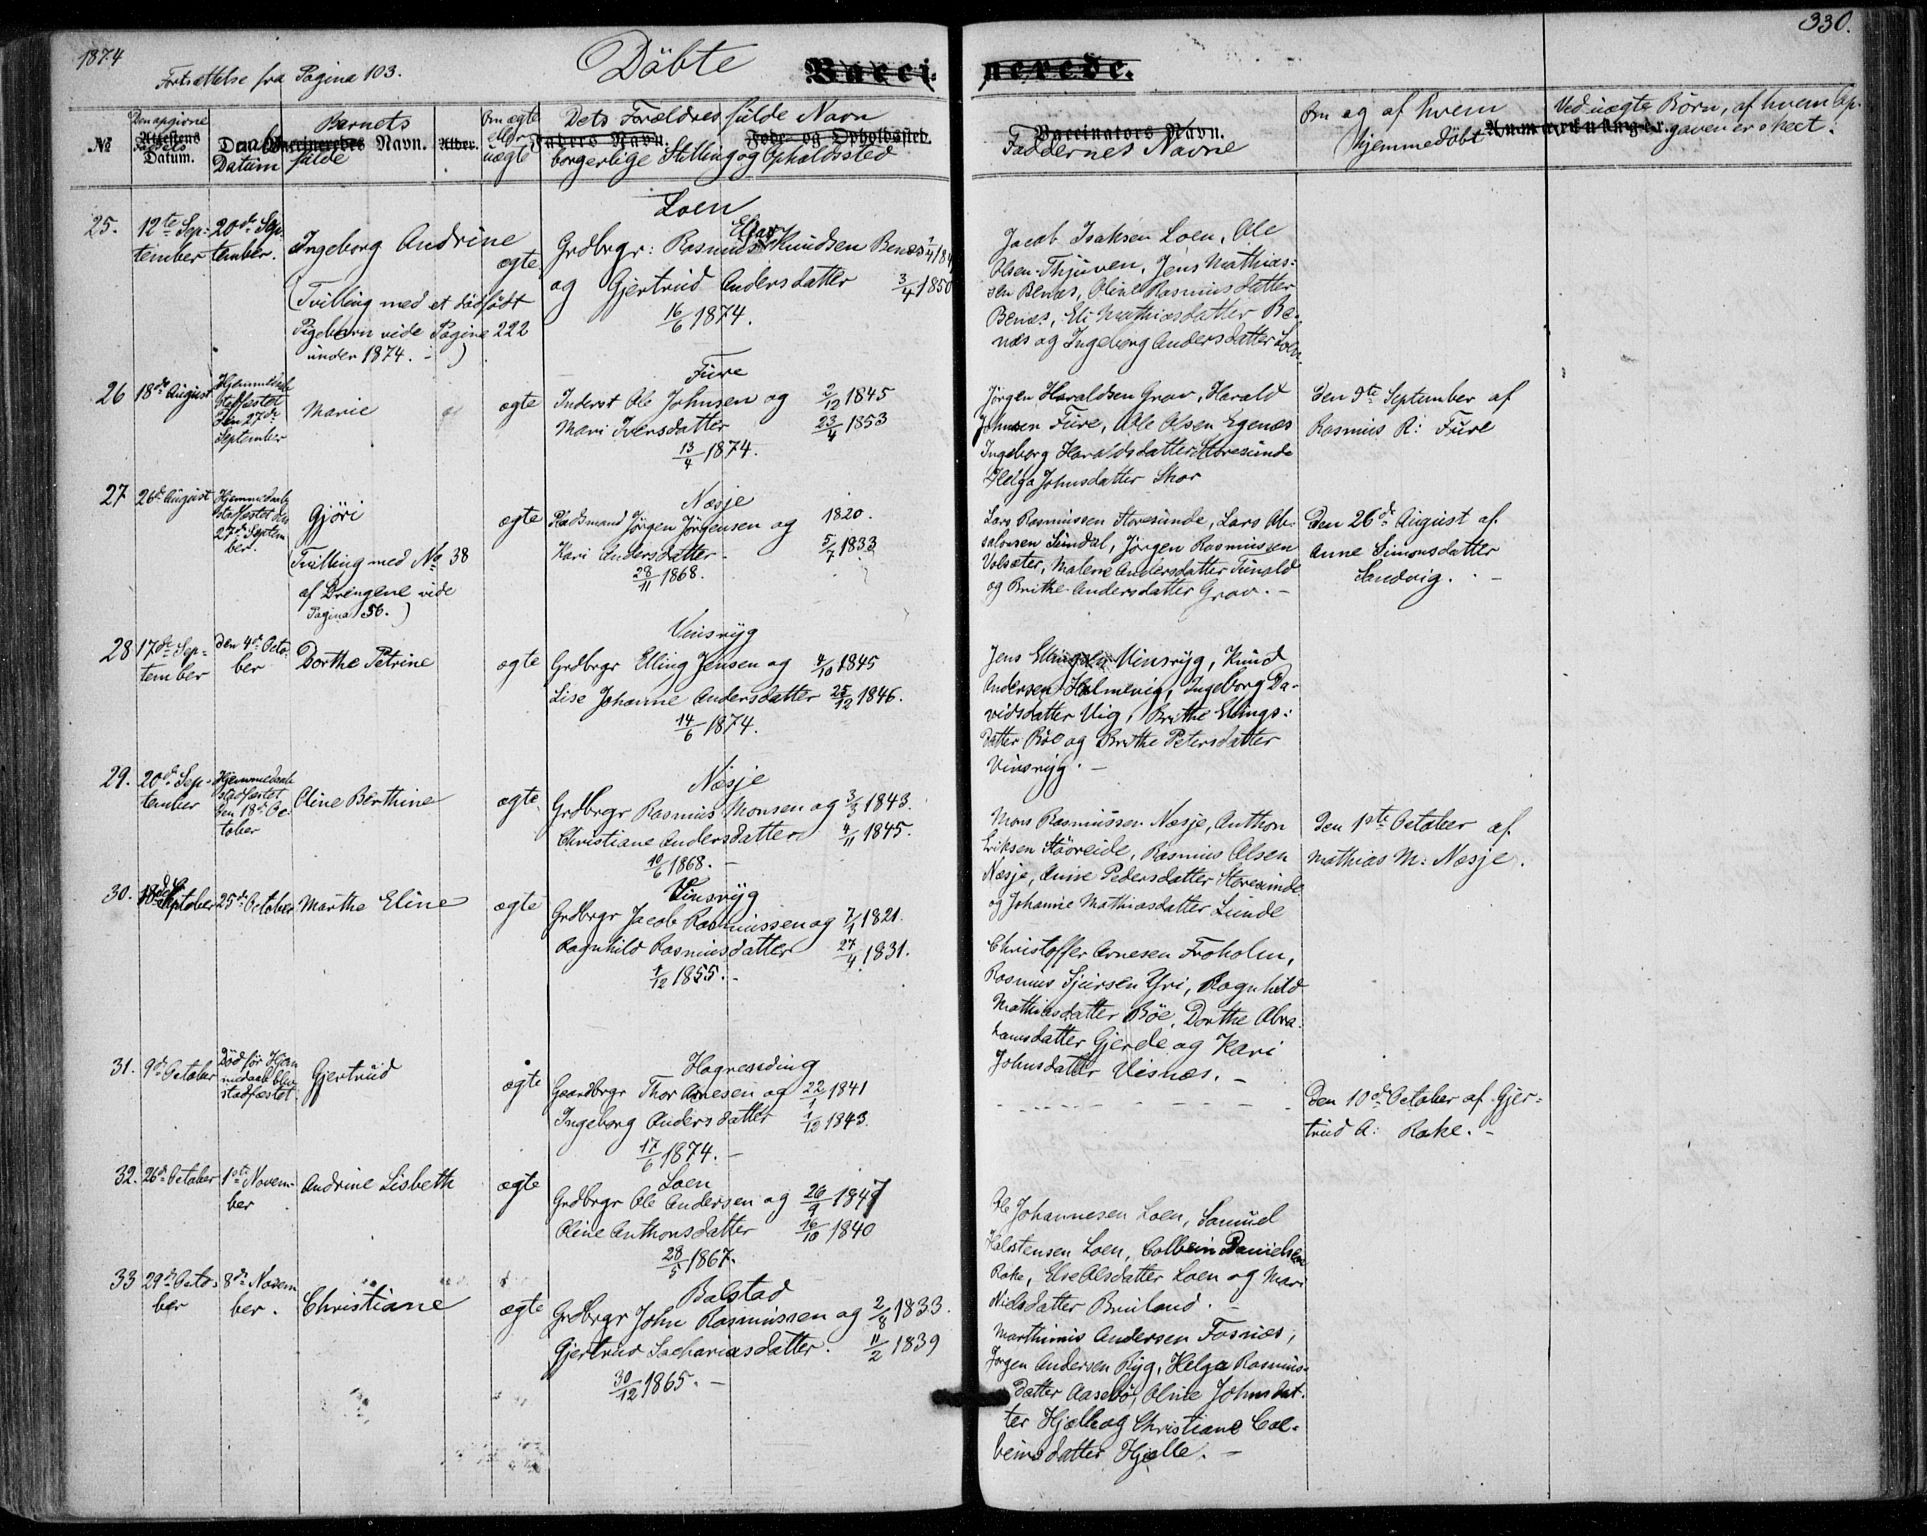 1874
330.
Fortsættelse fra Pagina 103.
Döbte
Vacci- nerede.
Den opgivne
№ Attestens Datum.
Daab Datum
Barnets fulde Navn.
Vaccineredes
Alder.
Om ægte eller uægte
Dets Forældres fulde Navn
Faders Navn. Føde- og Opholdssted.
borgerlige Stilling og Opholdssted
Vaccinators Navn.
Faddernes Navne
Om og af hvem
hjemmedöbt
Anmærkninger.
Ved uægte Börn, af hvem Op-
gaven er skeet.
25. 12te Sep-
tember
20de Sep-
tember.
Ingeborg Andrine
(Tvilling med et dödfödt
Pigebarn vide Pagina 222
under 1874. - )
ægte
Loen
Grdbrgr: Rasmus Elias Knudsen Benæs
og Gjertrud Andersdatter 3/4 1850
16/6 1874.
Jacob Isaksen Loen, Ole
Olsen Thjuven, Jens Mathias-
sen Benæs, Oline Rasmusdatter
Benæs, Eli Mathiasdatter Be-
næs og Ingeborg Andersdatter Loen
26 18de August
Hjemmedaab
stadfæstet
den 27de
September
Marie
ægte
Fure
Inderst Ole Johnsen og 2/12 1845
Mari Iversdatter 23/4 1853
13/4 1874.
Jörgen Haraldsen Grav, Harald
Johnsen Fure, Ole Olsen Egenæs
Ingeborg Haraldsdatter Storesunde
Helga Johnsdatter Skor
Den 9te September af
Rasmus R: Fure
27 26de August
Hjemmedaab
stadfæstet den
27de Septem-
ber.
Gjöri
(Tvilling med No 38
af Drengene vide
Pagina 56.)
ægte
Næsje
Pladsmand Jörgen Jörgensen og 1820.
Kari Andersdatter. 5/7 1833
28/11 1868.
Lars Rasmussen Storesunde, Lars Ab-
salonsen Sundal, Jörgen Rasmussen
Volsæter, Malene Andersdatter Tunold
og Brithe Andersdatter Grav. -
Den 26de August af
Anne Simonsdatter
Sandvig. -
28 17de Sep-
tember
den 4de Octo-
ber
Dorthe Petrine
ægte
Vinsryg
Grdbrgr Elling Jensen og 4/10 1845
Lise Johanne Andersdatter 25/12 1846.
14/6 1874.
Jens Vinsryg, Knud
Andersen Holmevig, Ingeborg Da-
vidsdatter Vig, Brithe Ellings-
datter Böe og Brithe Petersdatter
Vinsryg. -
29. 20de Sep-
tember
Hjemmedaab
stadfæstet
den 18de Oc-
tober
Oline Berthine
ægte
Næsje
Grdbrgr Rasmus Monsen og 3/3 1843.
Christiane Andersdatter 4/11 1845.
10/6 1868. -
Mons Rasmussen Næsje, Anthon
Eriksen Stöoreide, Rasmus Olsen
Næsje, Anne Pedersdatter Storesunde
og Johanne Mathiasdatter Lunde
Den 1ste October af
Mathias M: Næsje.
30. 25de October
Marthe Eline
ægte
Vinsryg
Grdbrgr Jacob Rasmussen og 7/1 1821.
Ragnhild Rasmusdatter 27/4 1831.
1/12 1855. -
Christoffer Arnesen Froholm,
Rasmus Sjursen Yri, Ragnhild
Mathiasdatter Böe, Dorthe Abra-
hamsdatter Gjerde og Kari
Johnsdatter Visnæs. -
31. 9de October
Död før Hjem-
medaab blev
stadfæstet
Gjertrud
ægte
Hogrending
Gaardbrgr Thor Arnesen og 22/1 1841
Ingeborg Andersdatter 1/12 1843.
17/6 1874. -
Den 10de October af Gjer-
trud A: Rake. -
32. 26de October
1ste Novem-
ber
Andrine Lisbeth
ægte
Loen
Grdbrgr Ole Andersen og 26/9 1847
Oline Anthonsdatter 16/10 1840
28/5 1867.
Ole Johannesen Loen, Samuel
Halstensen Loen, Colbein Danielsen
Rake, Else Olsdatter Loen og Mari
Nielsdatter Bruland. -
33 29de Octo-
ber
8de Novem-
ber.
Christiane
ægte
Balstad
Grdbrgr John Rasmussen og 2/8 1833.
Gjertrud Zachariasdatter. 11/2 1839
30/12 1865. -
Marthinus Andersen Fosnæs,
Jörgen Andersen Ryg, Helga Rasmus-
datter Aasebö, Oline Johnsdat-
ter Hjelle og Christiane Col-
beinsdatter Hjelle. -